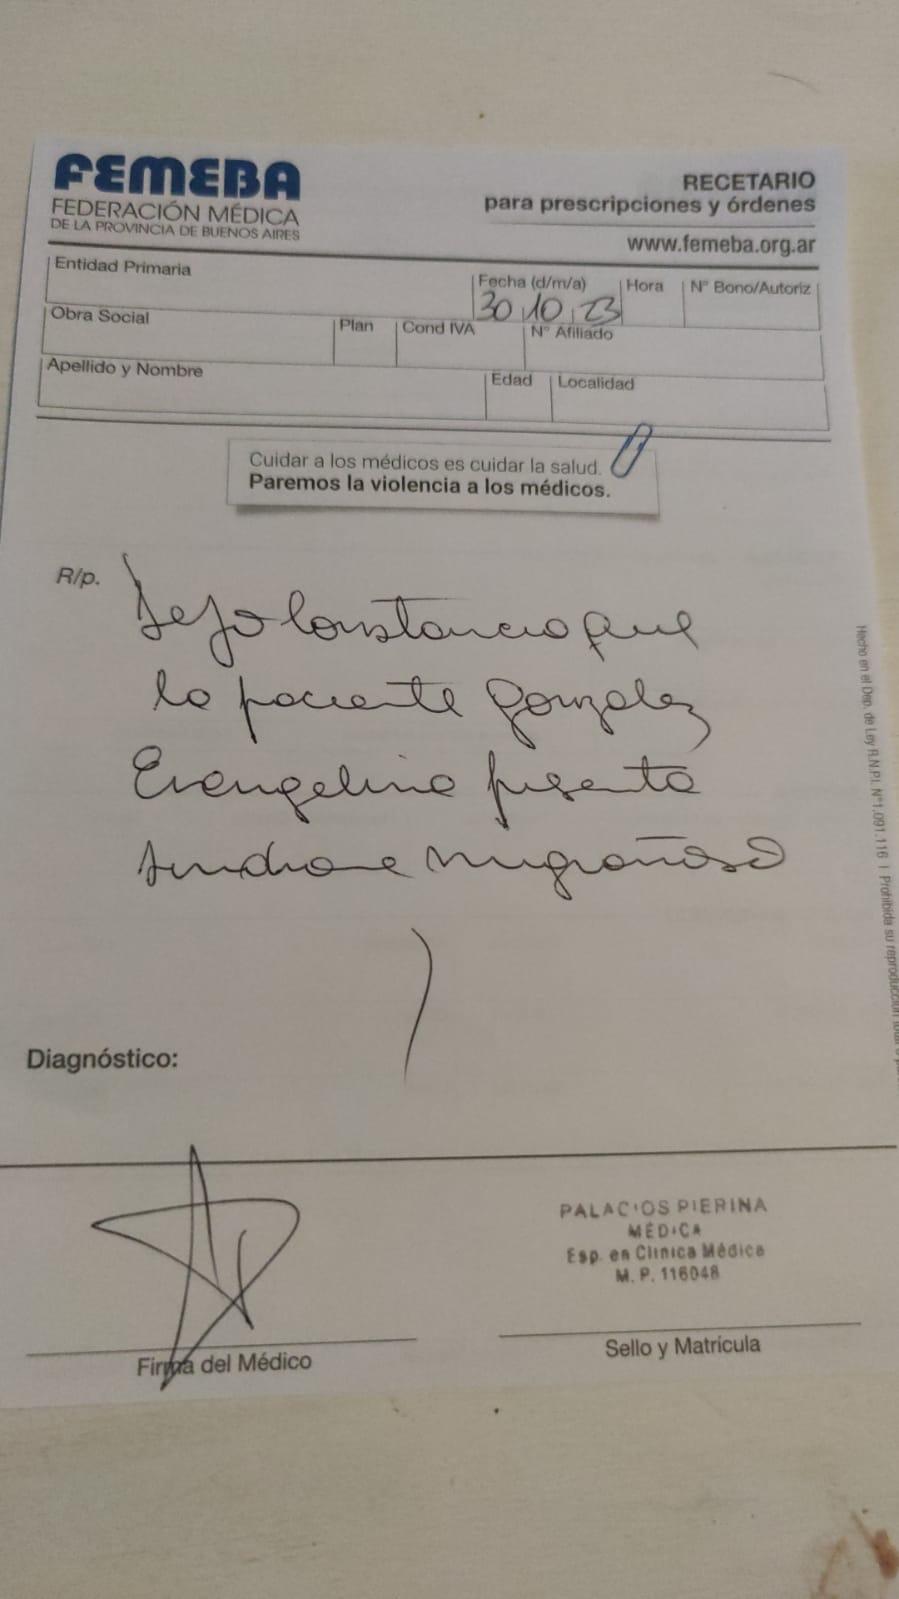 FEMEBA
FEDERACIÓN MÉDICA
DE LA PROVINCIA DE BUENOS AIRES
RECETARIO
para prescripciones y órdenes
www.femeba.org.ar
Entidad Primaria
Fecha (d/m/a)
Hora
N° Bono/Autoriz
30 10 23
Obra Social
Plan
Cond IVA
N° Afiliado
Apellido y Nombre
Edad
Localidad
Cuidar a los médicos es cuidar la salud.
Paremos la violencia a los médicos.
R/p.
Dejo Constancia que
la paciente Gonzalez
Evangelina presenta
sindrome migrañoso
Hecho en el Dep. de Ley R.N.P.I. N°1.091.116 | Prohibida su reproducción
Diagnóstico:
PALACIOS PIERINA
MÉDICA
Esp. en Clínica Médica
M. P. 116048
Firma del Médico
Sello y Matrícula